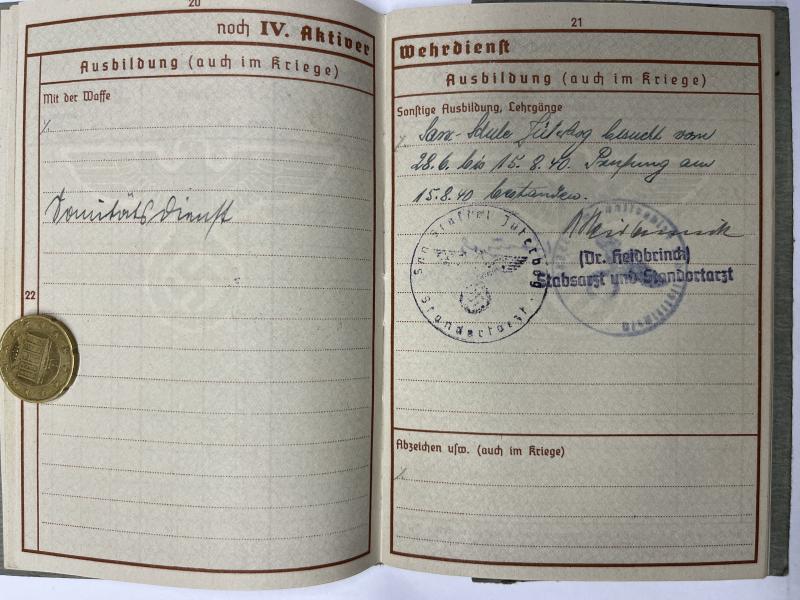 20
noch IV. Aktiver
Ausbildung (auch im Kriege)
Mit der Waffe
Sanitätsdienst
22
21
Wehrdienst
Ausbildung (auch im Kriege)
Sonstige Ausbildung, Lehrgänge
San.-Schule Jüterbog besucht vom
28.6. bis 15.8.40. Prüfung am
15.8.40 bestanden.
Sanstaffel Jüterbog
Standortarzt
(Dr. Heidbrinck)
Stabsarzt und Standortarzt
Abzeichen usw. (auch im Kriege)